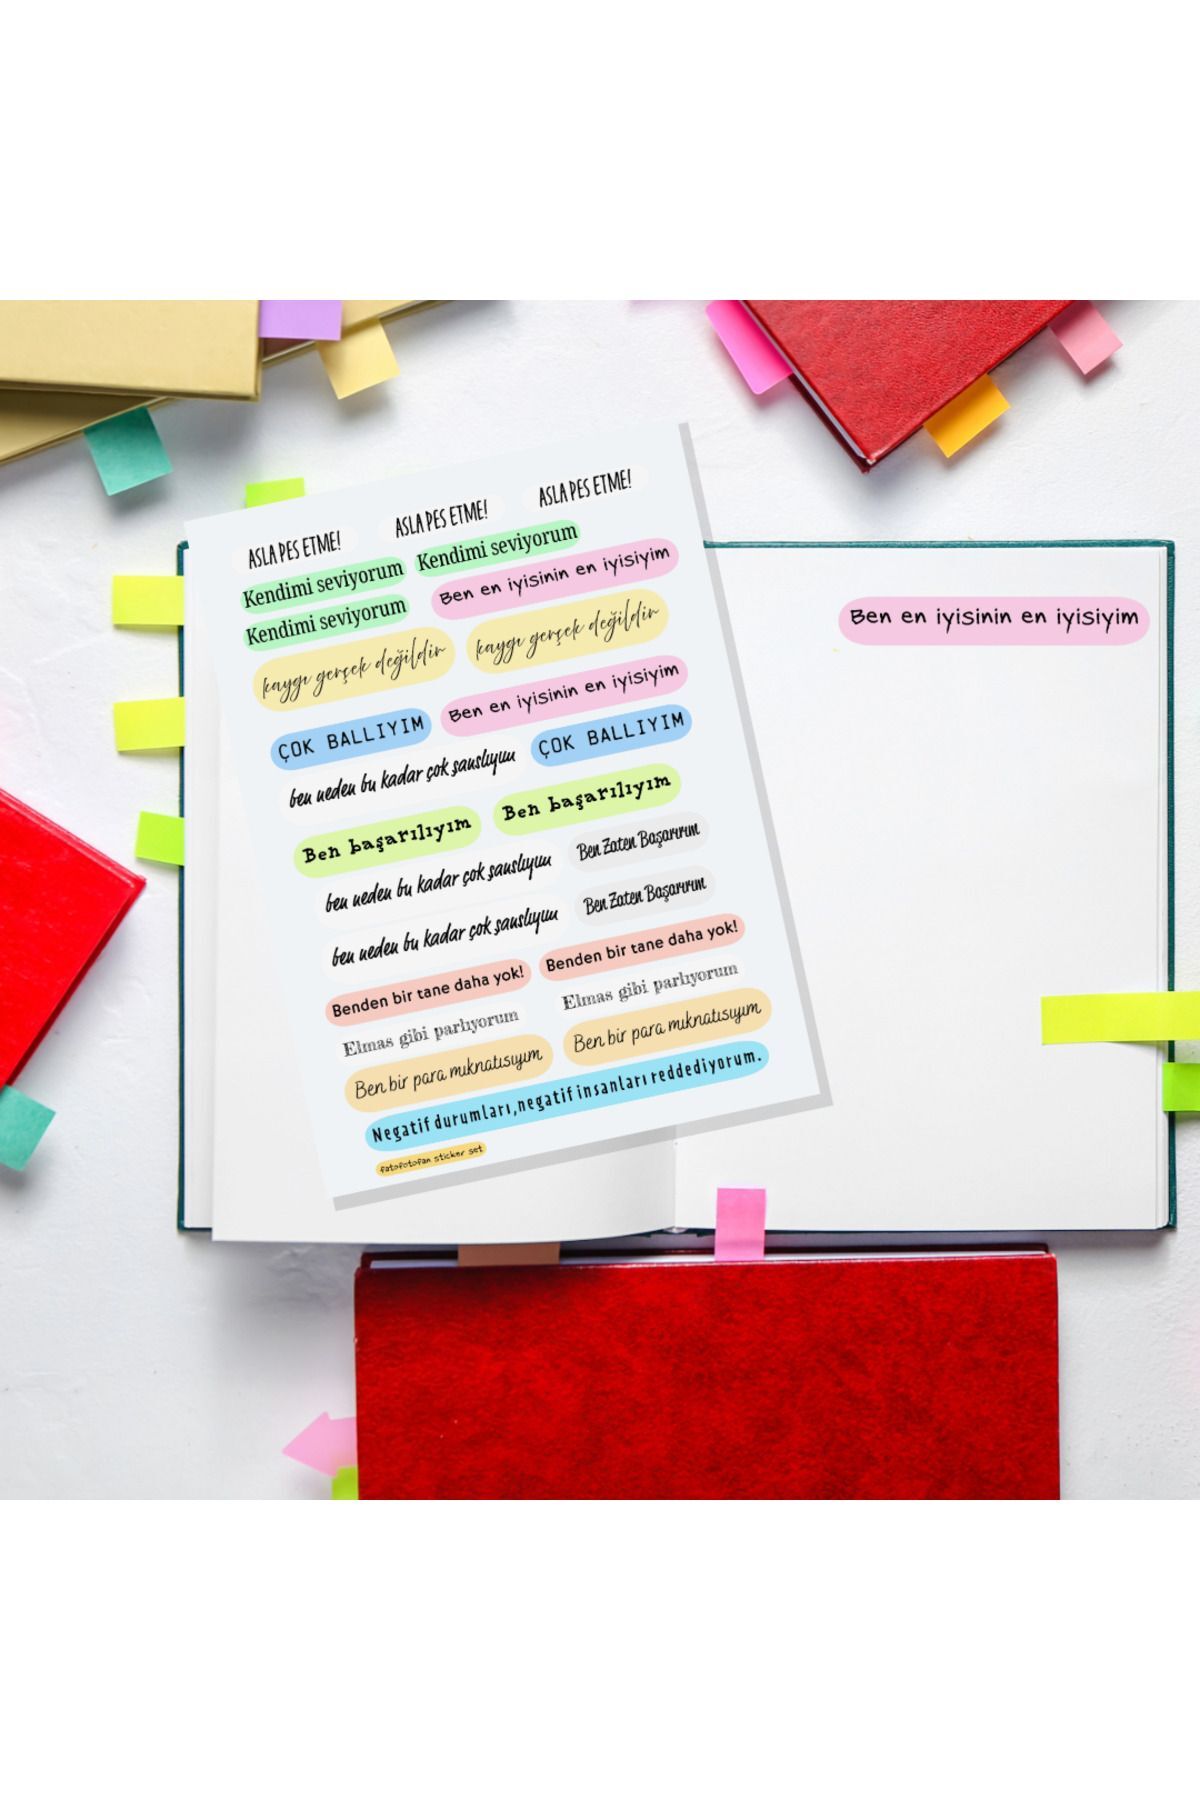 ASLA PES ETME! ASLA PES ETME! ASLA PES ETME!
Kendimi seviyorum Kendimi seviyorum
Kendimi seviyorum Ben en iyisinin en iyisiyim
kaygı gerçek değildir kaygı gerçek değildir
ÇOK BALLIYIM Ben en iyisinin en iyisiyim
ben neden bu kadar çok şanslıyım ÇOK BALLIYIM
Ben başarılıyım Ben başarılıyım
ben neden bu kadar çok şanslıyım Ben Zaten Başarırım
ben neden bu kadar çok şanslıyım Ben Zaten Başarırım
Benden bir tane daha yok! Benden bir tane daha yok!
Elmas gibi parlıyorum Elmas gibi parlıyorum
Ben bir para mıknatısıyım Ben bir para mıknatısıyım
Negatif durumları,negatif insanları reddediyorum.
fatofotofan sticker set
Ben en iyisinin en iyisiyim